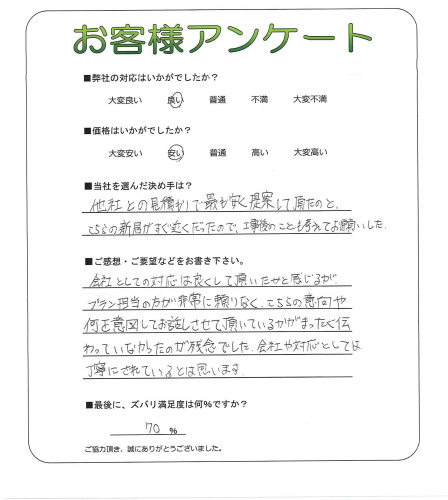 お客様アンケート
■弊社の対応はいかがでしたか?
大変良い 良い 普通 不満 大変不満
■価格はいかがでしたか?
大変安い 安い 普通 高い 大変高い
■当社を選んだ決め手は?
他社との見積わりで最も安く提案して頂たのと、
こちらの新居がすぐ近くだったので、工事後のことも考えてお願いした。
■ご感想・ご要望などをお書き下さい。
会社としての対応は良くして頂いたかと感じるが、
プラン担当の方が非常に頼りなく、こちらの意向や
何を意図してお話しさせて頂いているかがまったく伝
わっていなかったのが残念でした。会社や対応としては
丁寧にされているとは思います。
■最後に、ズバリ満足度は何%ですか?
70 %
ご協力頂き、誠にありがとうございました。